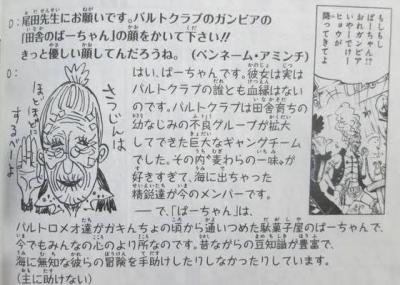 D：尾田先生にお願いです。バルトクラブのガンビアの
「田舎のばーちゃん」の顔をかいて下さい!!
きっと優しい顔してんだろうね。（ペンネーム・アミンチ）
O：
はい。ばーちゃんです。彼女は実は
バルトクラブの誰とも血縁はない
のです。バルトクラブは田舎育ちの
幼なじみの不良グループが拡大
してできた巨大なギャングチーム
でした。その内〝麦わらの一味〟が
好きすぎて、海に出ちゃった
精鋭達が今のメンバーです。
――で、「ばーちゃん」は、
バルトロメオ達ががきんちょの頃から通いつめた駄菓子屋のばーちゃんで、
今でもみんなの心のより所なのです。昔ながらの豆知識が豊富で、
海に無知な彼らの冒険を手助けしたりしなかったりしています。
（主に助けない）
さつじんは
ほどほどに
するべーよ
もしもし
ばーちゃん!?
おれガンビア
いやー でけー
ヒョウが
降ってきてよ